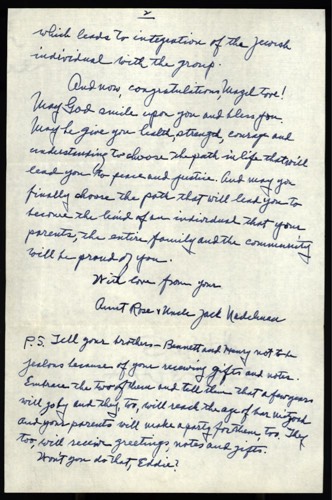 2
which leads to integration of the Jewish
individual with the group.
And now, congratulations, Mazel Tove!
May God smile upon you and bless you.
May he give you health, strength, courage and
understanding to choose the path in life that will
lead you to peace and justice. And may you
finally choose the path that will lead you to
become the kind of an individual that your
parents, the entire family and the community
will be proud of you.
With love from your
Aunt Rose & Uncle Jack Nadelman
P.S. Tell your brothers - Bennett and Henry not to be
jealous because of your receiving gifts and notes.
Embrace the two of them and tell them that a few years
will go by and they, too, will reach the age of bar mitzvah
and your parents will make a party for them, too. They
too, will receive greetings, notes and gifts.
Won't you do that, Eddie?